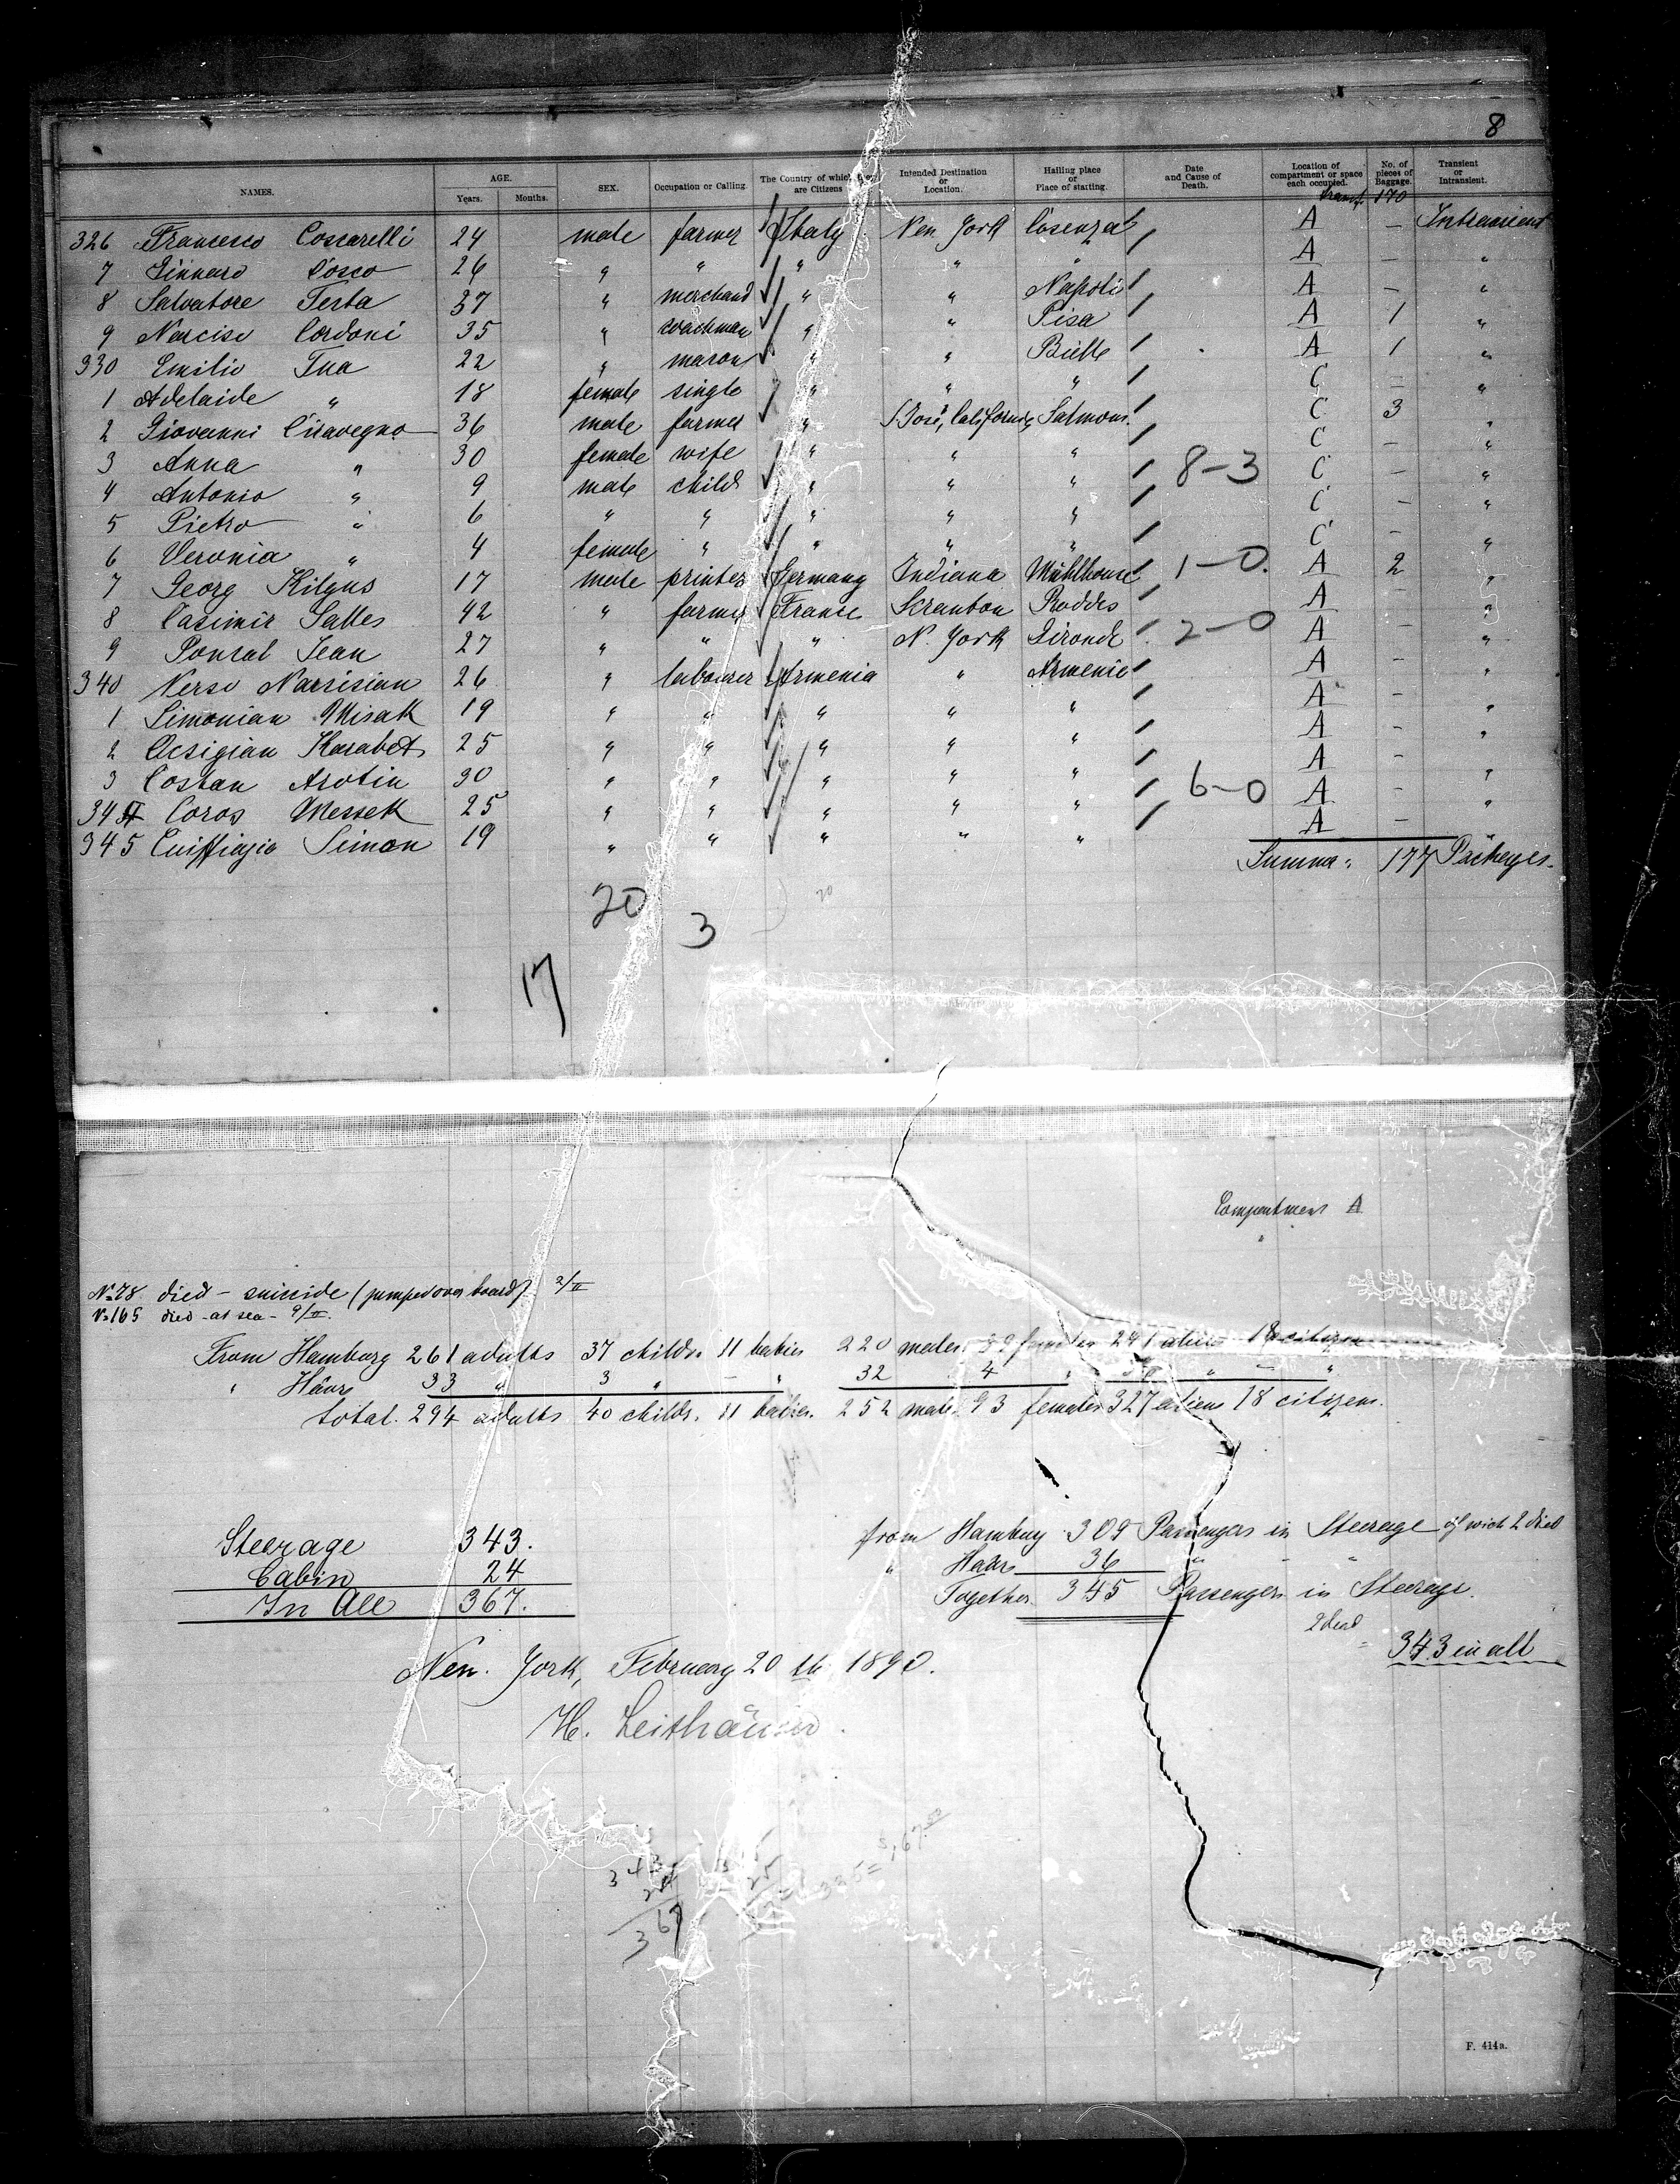 8
NAMES. AGE. Years. Months. SEX. Occupation or Calling. The Country of which they are Citizens Intended Destination or Location. Hailing place or Place of starting. Date and Cause of Death. Location of compartment or space each occupied. No. of pieces of Baggage. Transient or Intransient.
transp. 170
326 Francesco Coscarelli 24 male farmer Italy New York Cosenza A — Intransient
7 Ginnaro Cosco 26 " " " " " A — "
8 Salvatore Testa 37 " merchand " " Napoli A — "
9 Narciso Cordoni 35 " coachman " " Pisa A 1 "
330 Emilio Tua 22 " mason " " Bielle A 1 "
1 Adelaide " 18 female single " " " C — "
2 Giovanni 36 male farmer " S. José, California Salmons. C 3 "
3 Anna " 30 female wife " " " C — "
4 Antonio " 9 male child " " " 8-3 C — "
5 Pietro " 6 " " " " " C — "
6 Veronia " 4 female " " " " C — "
7 Georg Kilgus 17 male printer Germany Indiana Mühlhouse 1-0. A 2 "
8 Casimir Salles 42 " farmer France Skranton Roddes A — "
9 Ponsal Jean 27 " " " N. York Gironde 2-0 A — "
340 Nerso Narsisian 26 " labourer Armenia " Armenie A — "
1 Simonian Misak 19 " " " " " A — "
2 Karabet 25 " " " " " A — "
3 Costan Arotin 30 " " " " " A — "
344 Coros Messek 25 " " " " " 6-0 A — "
345 Simon 19 " " " " " A —
Summa: 177 Packages.
20 3 20
17
Compartment A
"
No 78 died - suicide (jumped over board) 2/II
No 165 died - at sea - 9/II.
From Hamburg 261 adults 37 childr. 11 babies 220 males 89 females 291 aliens 18 citizen
" Hâvre 33 " 3 " — " 32 4 " 36 " — "
total. 294 adults 40 childr. 11 babies. 252 male. 93 females 327 aliens 18 citizens.
Steerage 343.
Cabin 24
In All 367.
from Hamburg 309 Passengers in Steerage of wich 2 died
" Hâvre 36 " " "
Together 345 Passengers in Steerage.
2 dead
343 in all
New York, February 20th 1890.
H. Leithäuser.
343
24
367
F. 414a.